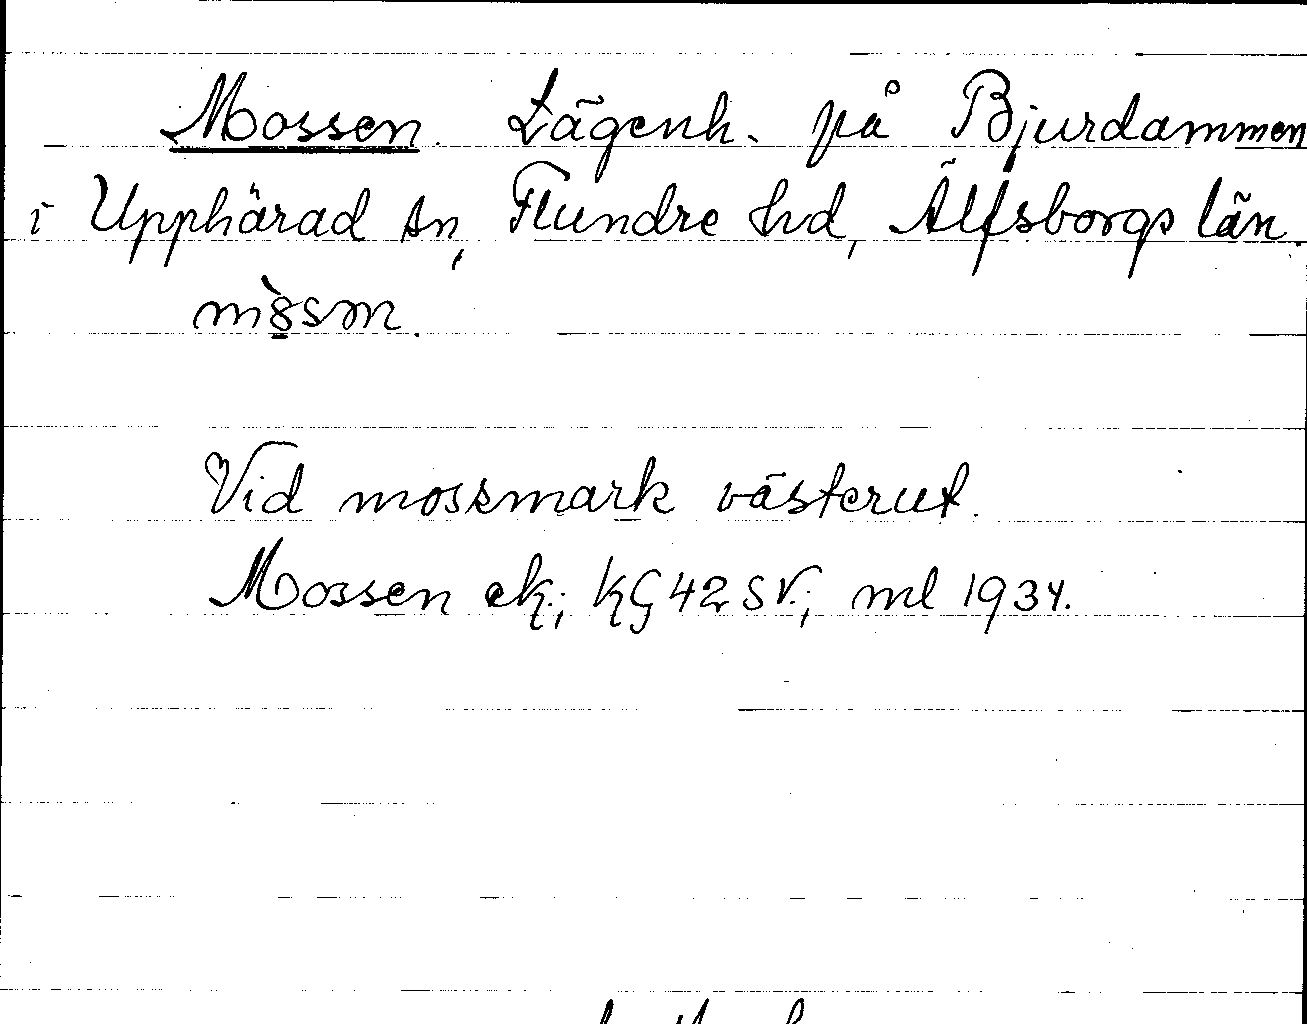 Mossen. Lägenh. på Bjurdammen
i Upphärad sn, Flundre hd, Älfsborgs län.
Vid mossmark västerut.
Mossen ek.; KG 42 SV.; ml 1934.